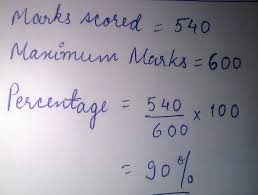 Marks scored = 540
Maximum Marks = 600
Percentage = 540/600 x 100
= 90%